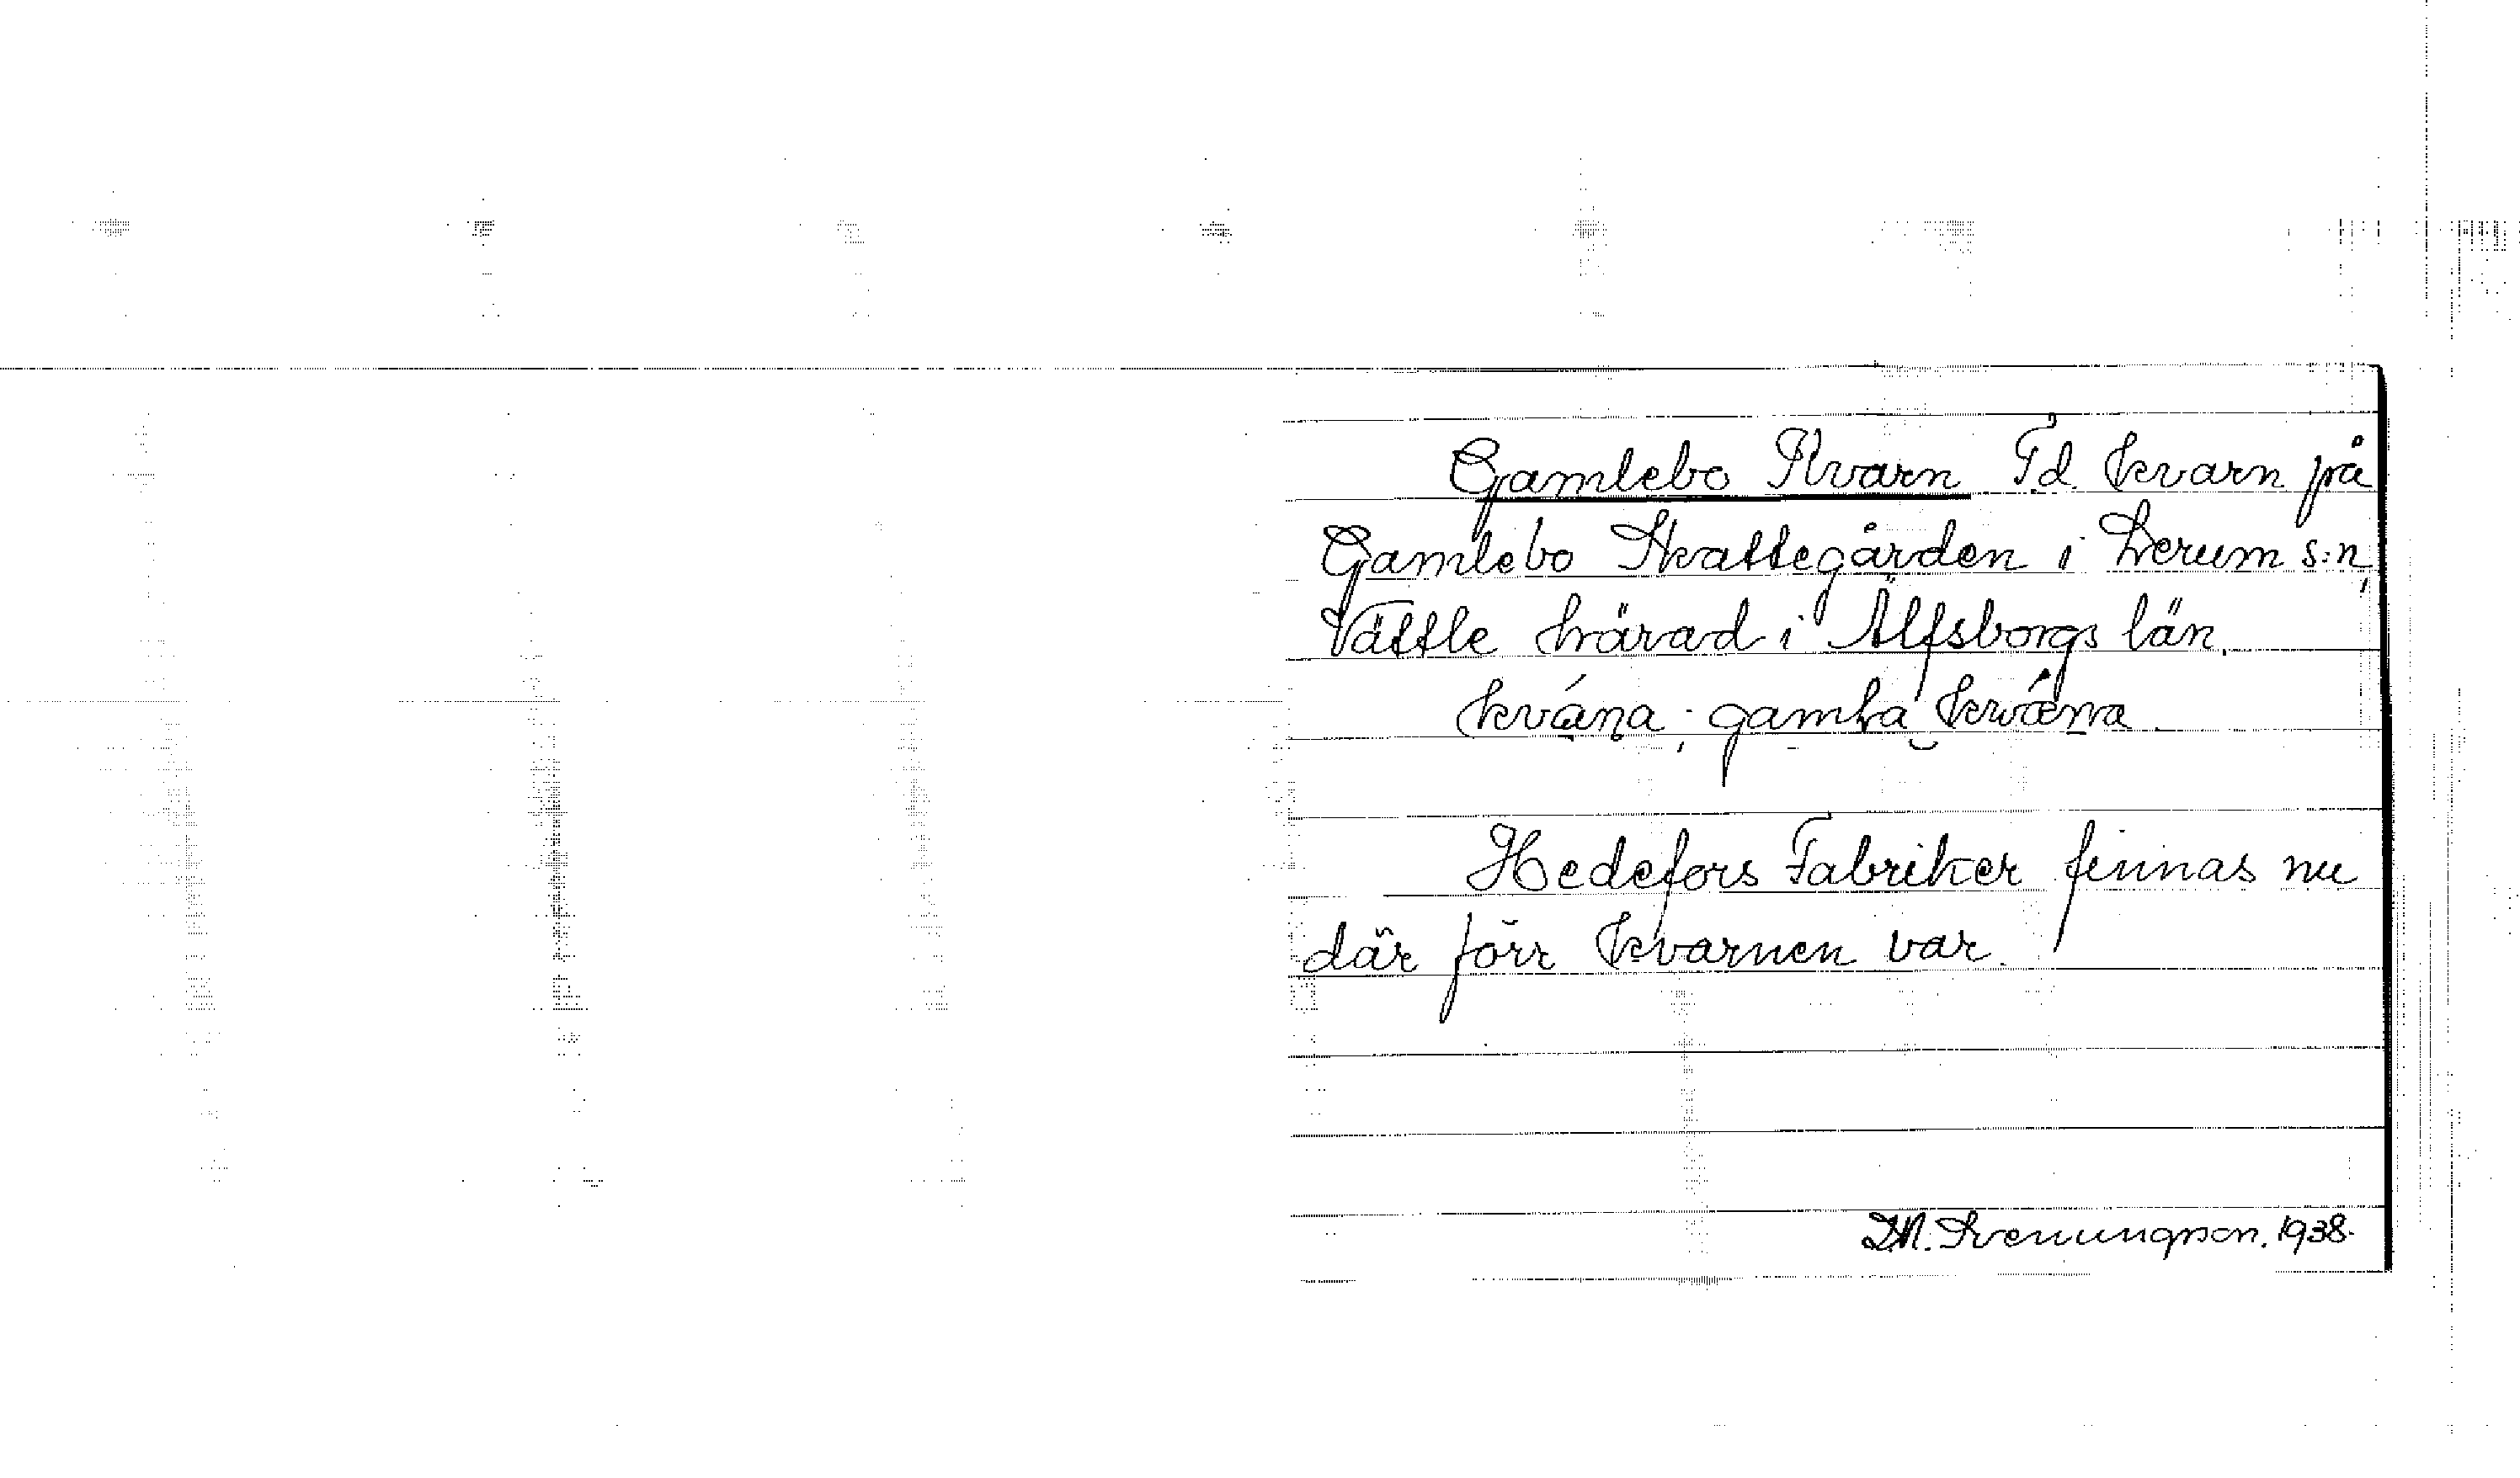 Gamlebo Kvarn F.d. kvarn på
Gamlebo Skattegården i Lerum s:n,
Vättle härad i Älfsborgs län.
kvána; gamla kvána
Hedefors Fabriker finnas nu
där förr kvarnen var.
D.N. Svenungson. 1938.